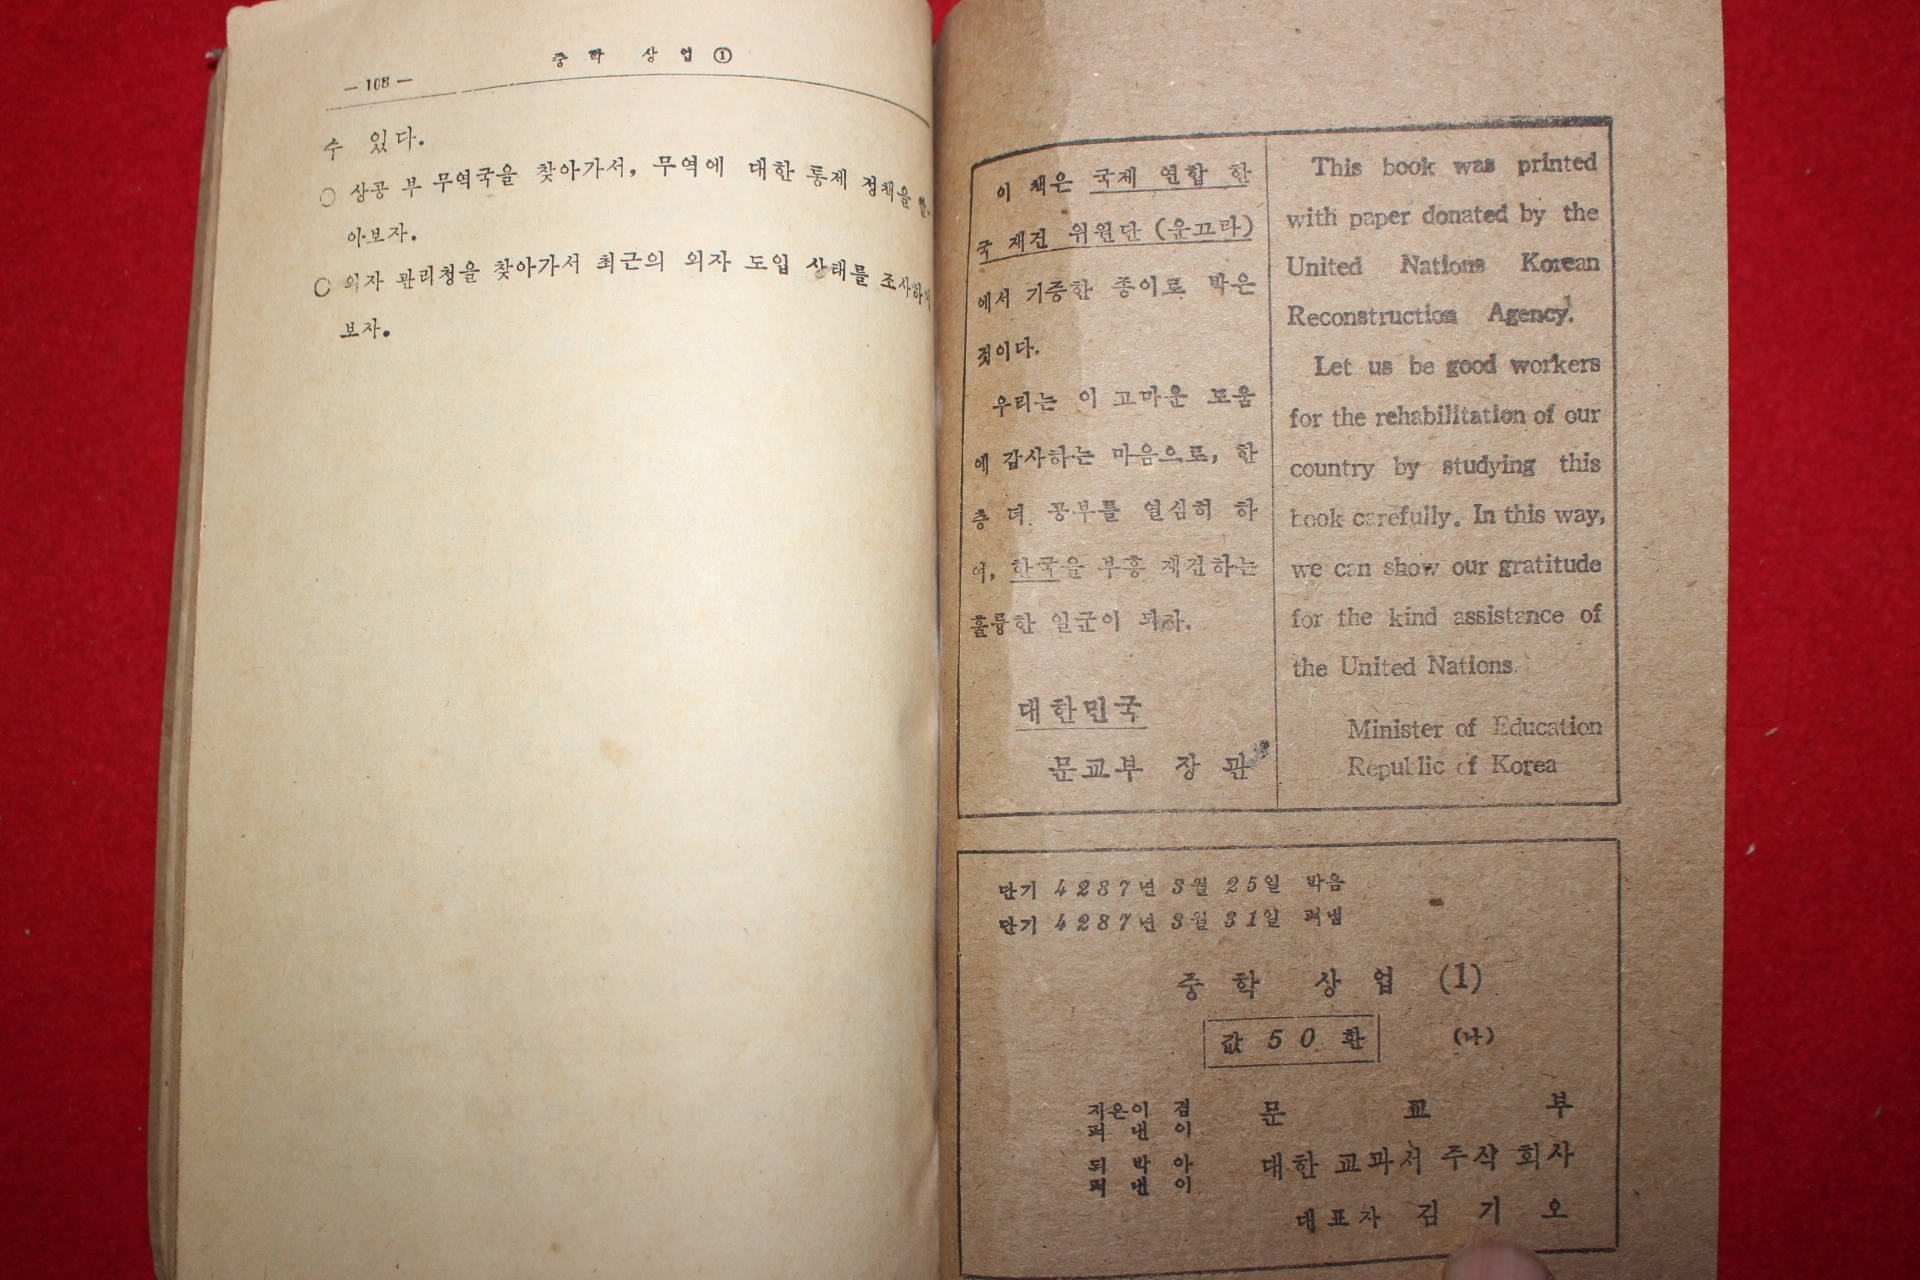 — 108 —
중 학 상 업 ①
수 있다.
○ 상공 부 무역국을 찾아가서, 무역에 대한 통제 정책을 알
아보자.
○ 외자 관리청을 찾아가서 최근의 외자 도입 상태를 조사하여
보자.
이 책은 국제 연합 한
국 재건 위원단 (운끄라)
에서 기증한 종이로 박은
것이다.
우리는 이 고마운 도움
에 감사하는 마음으로, 한
층 더 공부를 열심히 하
여, 한국을 부흥 재건하는
훌륭한 일군이 되자.
대한민국
문교부 장 관
This book was printed
with paper donated by the
United Nations Korean
Reconstruction Agency.
Let us be good workers
for the rehabilitation of our
country by studying this
book carefully. In this way,
we can show our gratitude
for the kind assistance of
the United Nations.
Minister of Education
Republic of Korea
단기 4287년 3월 25일 박음
단기 4287년 3월 31일 펴냄
중 학 상 업 (1)
값 50 환 (나)
지은이 겸
펴 낸 이
문 교 부
되 박 아
펴 낸 이
대한 교과서 주식 회사
대표자 김 기 오